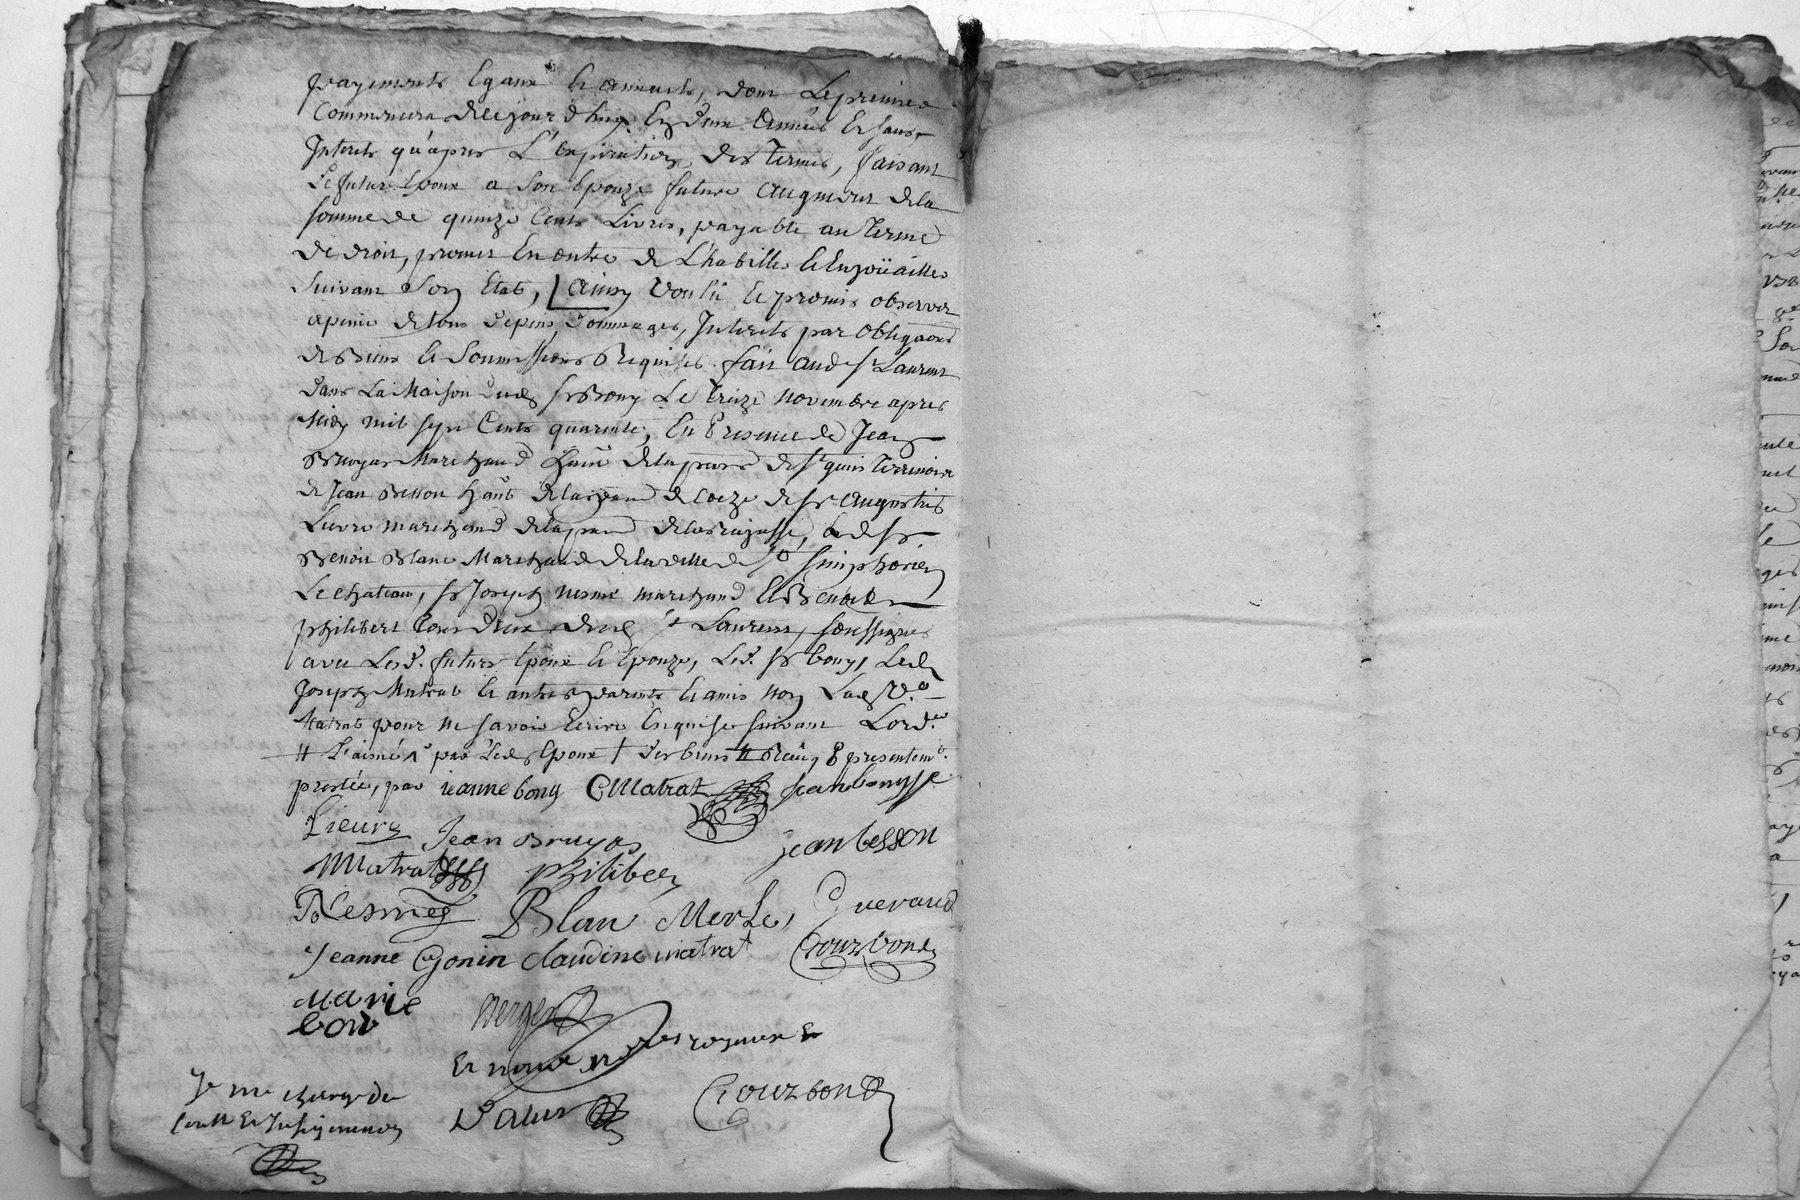 payements Egaux et annuels, dont Le premier
Commencera de ce jour d'huy En deux Années Et sans
Interets qu'après L'expiration des Termes, faisant
Le futur Epoux a Son Epouze future augment de la
somme de quinze Cents Livres, payable au Terme
de droit, promet En outre de L'habiller et Enjoüailler
Suivant Son Etat, Ainsy voulû et promis observer
a peine de tous depens, Dommages, Interets par obligaõns
de Biens et Soumissions Requises. fait aud St Laurent
dans La Maison dud Sr Bony Le treize novembre apres
Midy mil sept Cents quarente, En Presence de Jean
Bruyas Marchand de la parr de St
de Jean Besson de la parr de Coize de Sr Augustin
Lieure marchand de la parr de la Rajasse, de Sr
Benoit Blanc Marchand de la ville de St Simphorien
Le chateau, Sr Joseph nesme marchand Et Benoit
philibert tous deux dud St Laurens, soussignés
avec Lesd. futurs Epoux et Epouze, Led. Sr bony, Led
Joseph Matrat et autres parents et amis non Lad Ve
Matrat pour ne savoir Ecrire Enquise suivant Lord.ce
par Led Epoux + des biens presentemt
prestée, par jeanne bony CMatrat jean bony
Lieure Jean Bruyas jean besson
Matrat philibert
Nesme Blan Merle Gueraud
Jeanne Gonin claudine matrat Gourbond
Marie
bony Berger
Et nous nores royaux
Je me charge du
Conlle Et Insinuaon Gourbond